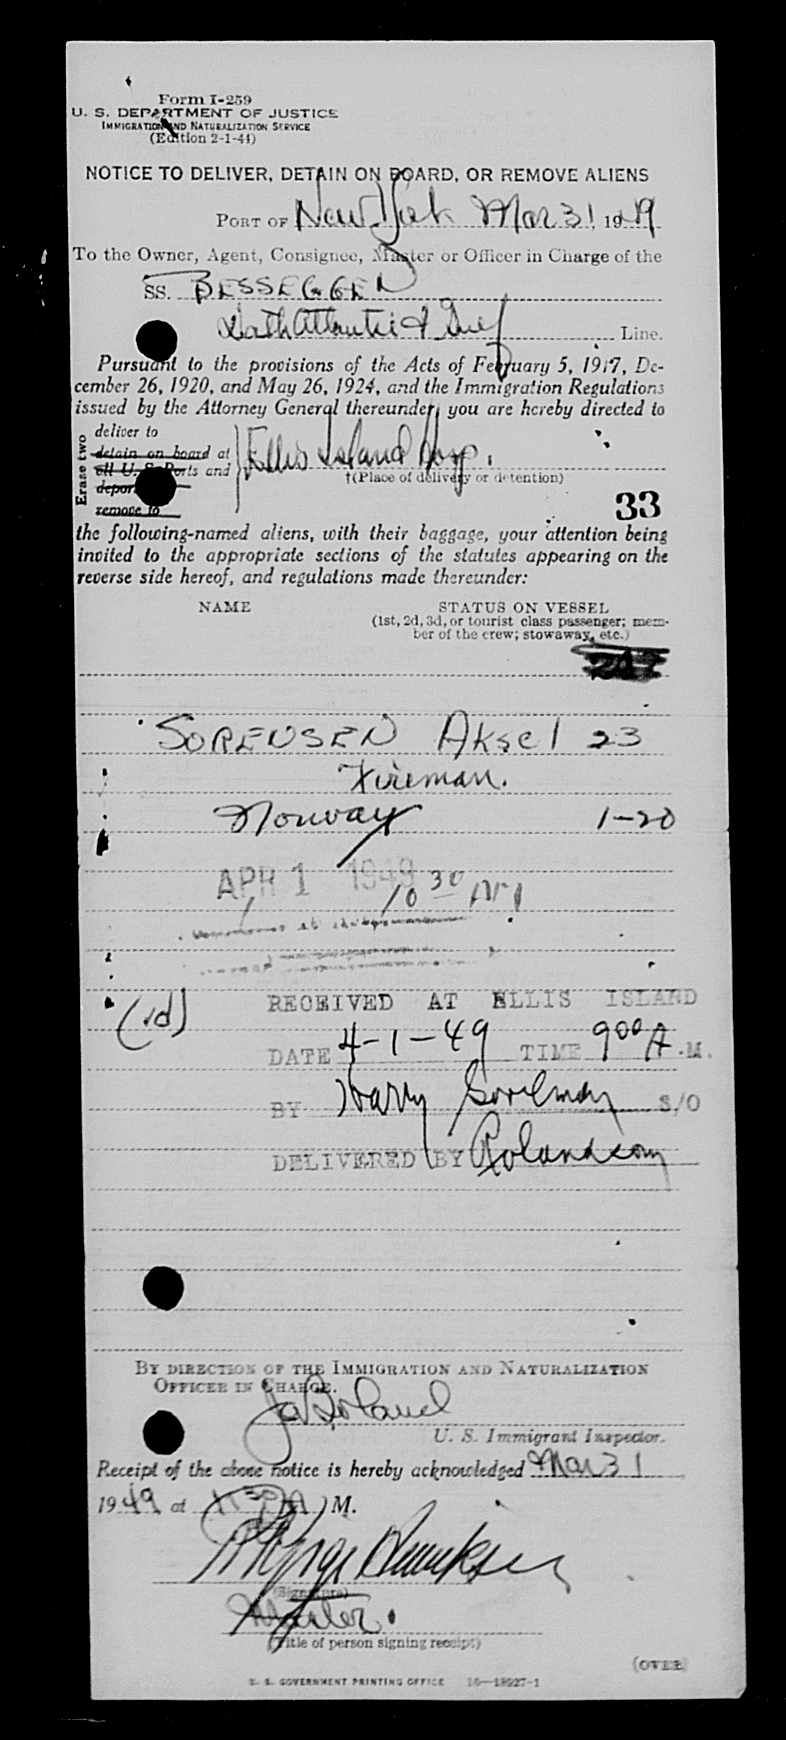 Form I-259
U. S. DEPARTMENT OF JUSTICE
IMMIGRATION AND NATURALIZATION SERVICE
(Edition 2-1-44)
NOTICE TO DELIVER, DETAIN ON BOARD, OR REMOVE ALIENS
PORT OF New York Mar 31 1949
To the Owner, Agent, Consignee, Master or Officer in Charge of the
SS. BESSEGGEN
Atlantic & Gulf Line.
Pursuant to the provisions of the Acts of February 5, 1917, De-
cember 26, 1920, and May 26, 1924, and the Immigration Regulations
issued by the Attorney General thereunder, you are hereby directed to
Erase two
deliver to
detain on board at
all U. S. Ports and
deport
remove to
Ellis Island Hosp.
†(Place of delivery or detention)
33
the following-named aliens, with their baggage, your attention being
invited to the appropriate sections of the statutes appearing on the
reverse side hereof, and regulations made thereunder:
NAME STATUS ON VESSEL
(1st, 2d, 3d, or tourist class passenger; mem-
ber of the crew; stowaway, etc.)
SORENSEN Aksel 23
Fireman.
Norway 1-20
APR 1 1949 10 30 AM
RECEIVED AT ELLIS ISLAND
DATE 4-1-49 TIME 9 00 A.M.
BY Harry S/O
DELIVERED BY
BY DIRECTION OF THE IMMIGRATION AND NATURALIZATION
OFFICER IN CHARGE.
U. S. Immigrant Inspector.
Receipt of the above notice is hereby acknowledged Mar 31
1949 at M.
(Signature)
Master.
(Title of person signing receipt)
(OVER)
U. S. GOVERNMENT PRINTING OFFICE 16—18927-1